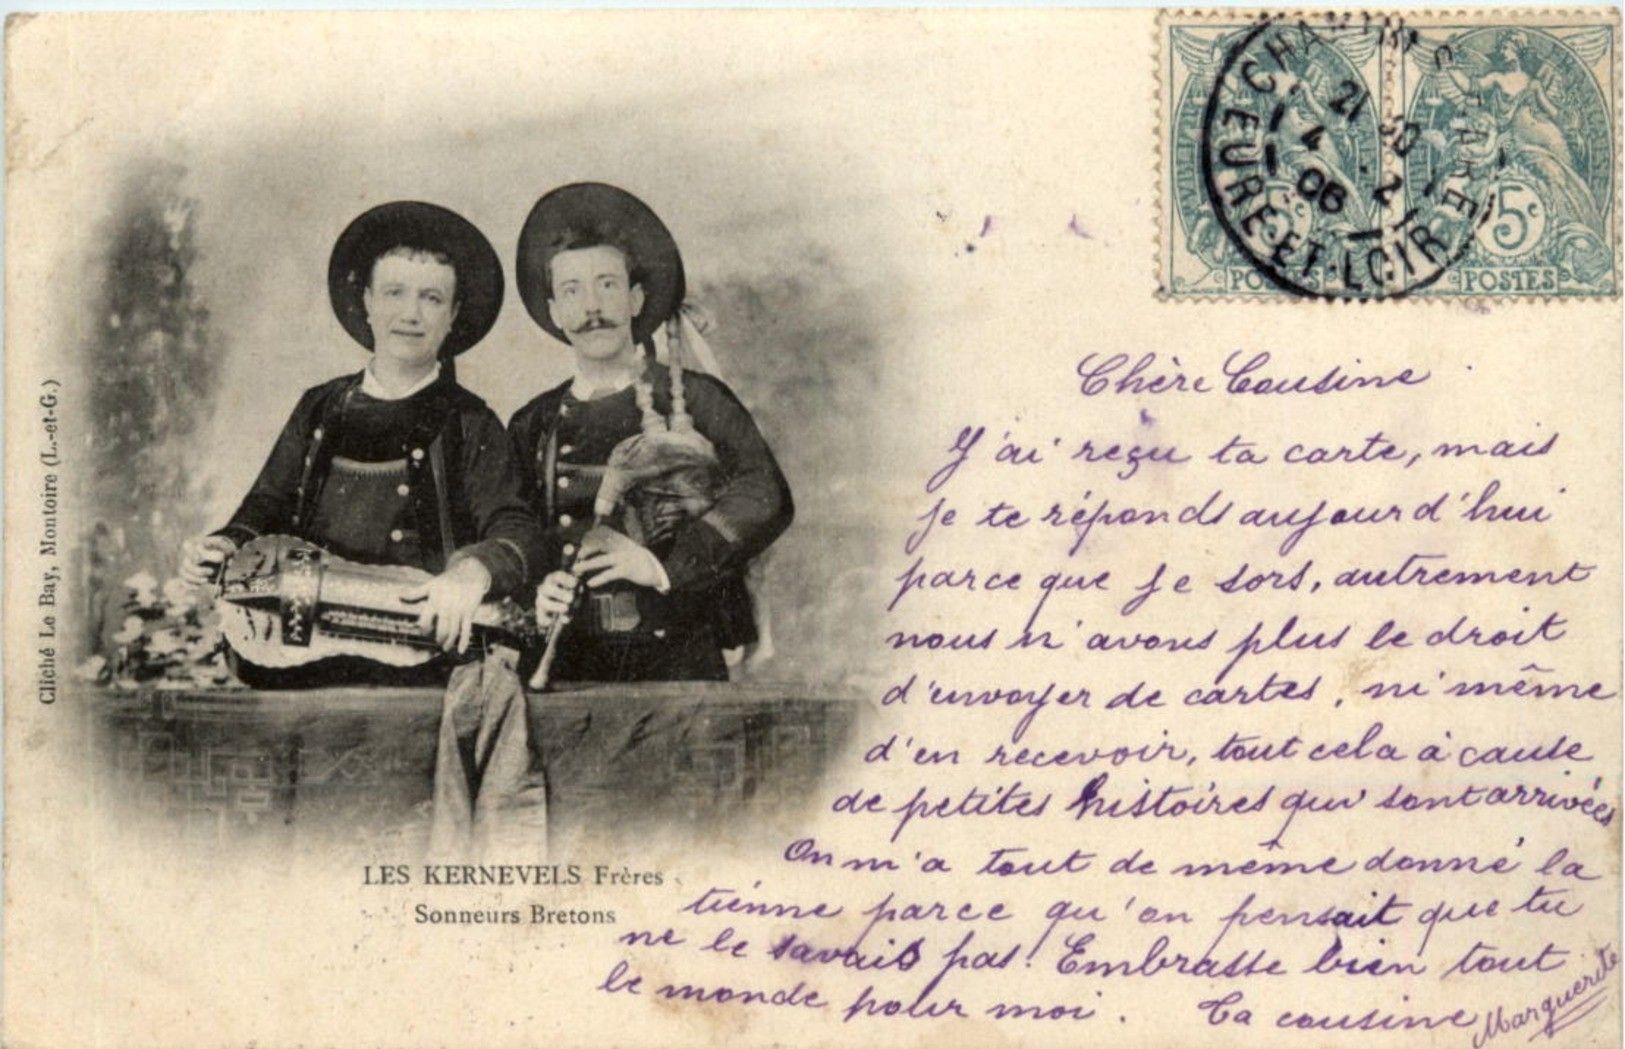 5c
POSTES
5c
POSTES
EURE-ET-LOIR
21
4
06
Cliché Le Bay, Montoire (L.-et-G.)
LES KERNEVELS Frères
Sonneurs Bretons
Chère Cousine
J'ai reçu ta carte, mais
je te réponds aujourd'hui
parce que je sors, autrement
nous n'avons plus le droit
d'envoyer de cartes, ni même
d'en recevoir, tout cela à cause
de petites histoires qui sont arrivées
On m'a tout de même donné la
tienne parce qu'on pensait que tu
ne le savais pas. Embrasse bien tout
le monde pour moi. Ta cousine
Marguerite